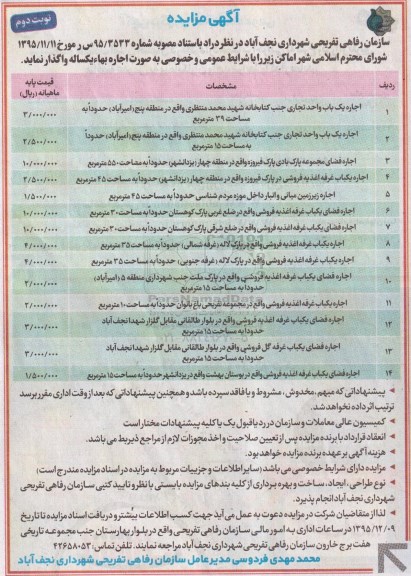 آگهی مزایده
نوبت دوم
سازمان رفاهی تفریحی شهرداری نجف آباد در نظر دارد باستناد مصوبه شماره ۹۵/۳۵۳۳ س ر مورخ ۱۳۹۵/۱۱/۱۱
شورای محترم اسلامی شهر اماکن زیر را با شرایط عمومی و خصوصی به صورت اجاره بهاء یکساله واگذار نماید.
ردیف
مشخصات
قیمت پایه ماهیانه (ریال)
۱
اجاره یک باب واحد تجاری جنب کتابخانه شهید محمد منتظری واقع در منطقه پنج (امیرآباد) حدوداً به
مساحت ۳۹ مترمربع
۳/۰۰۰/۰۰۰
۲
اجاره یک باب واحد تجاری جنب کتابخانه شهید محمد منتظری واقع در منطقه پنج (امیرآباد) حدوداً
به مساحت ۱۵ مترمربع
۲/۵۰۰/۰۰۰
۳
اجاره فضای مجموعه پارک بادی پارک فیروزه واقع در منطقه چهار (یزدانشهر) حدوداً به مساحت ۵۵۰ مترمربع
۱۰/۰۰۰/۰۰۰
۴
اجاره فضای یکباب غرفه اغذیه فروشی در پارک فیروزه واقع در منطقه چهار (یزدانشهر) حدوداً به مساحت ۴۵ مترمربع
۲/۵۰۰/۰۰۰
۵
اجاره زیرزمین میانی و انبار داخل موزه مردم شناسی حدوداً به مساحت ۴۵ مترمربع
۱/۵۰۰/۰۰۰
۶
اجاره فضای یکباب غرفه اغذیه فروشی واقع در ضلع غربی پارک کوهستان حدوداً به مساحت ۳۰ مترمربع
۱۰/۰۰۰/۰۰۰
۷
اجاره فضای یکباب غرفه اغذیه فروشی واقع در ضلع شرقی پارک کوهستان حدوداً به مساحت ۳۰ مترمربع
۱۰/۰۰۰/۰۰۰
۸
اجاره یکباب غرفه اغذیه فروشی واقع در پارک لاله (غرفه شمالی) حدوداً به مساحت ۳۵ مترمربع
۴/۰۰۰/۰۰۰
۹
اجاره یکباب غرفه اغذیه فروشی واقع در پارک لاله (غرفه جنوبی) حدوداً به مساحت ۳۵ مترمربع
۴/۰۰۰/۰۰۰
۱۰
اجاره فضای یکباب غرفه اغذیه فروشی واقع در پارک ملت جنب شهرداری منطقه ۵ (امیرآباد)
حدوداً به مساحت ۱۵ مترمربع
۲/۰۰۰/۰۰۰
۱۱
اجاره یکباب غرفه اغذیه فروشی واقع در مجموعه تفریحی باغ بانوان حدوداً به مساحت ۱۰ مترمربع
۲/۰۰۰/۰۰۰
۱۲
اجاره فضای یکباب غرفه اغذیه فروشی واقع در بلوار طالقانی مقابل گلزار شهدا نجف آباد
حدوداً به مساحت ۱۵ مترمربع
۳/۰۰۰/۰۰۰
۱۳
اجاره فضای یکباب غرفه گل فروشی واقع در بلوار طالقانی مقابل گلزار شهدا نجف آباد
حدوداً به مساحت ۱۵ مترمربع
۳/۰۰۰/۰۰۰
۱۴
اجاره فضای یکباب غرفه اغذیه فروشی واقع در بوستان بهشت واقع در یزدانشهر حدوداً به مساحت ۱۵ مترمربع
۱/۵۰۰/۰۰۰
پیشنهاداتی که مبهم، مخدوش، مشروط و یا فاقد سپرده باشد و همچنین پیشنهاداتی که بعد از وقت اداری مقرر برسد
ترتیب اثر داده نخواهد شد.
کمیسیون عالی معاملات و سازمان در رد یا قبول یک یا کلیه پیشنهادات مختار است
انعقاد قرارداد با برنده مزایده پس از تعیین صلاحیت و اخذ مجوزات لازم از مراجع ذیربط می باشد.
هزینه آگهی بر عهده برنده مزایده خواهد بود.
مزایده دارای شرایط خصوصی می باشد (سایر اطلاعات و جزییات مربوط به مزایده در اسناد مزایده مندرج است)
نوع طراحی، ایجاد، ساخت و بهره برداری از کلیه بندهای مزایده بایستی با نظر و تایید کتبی سازمان رفاهی تفریحی
شهرداری نجف آباد انجام پذیرد.
لذا از متقاضیان شرکت در مزایده دعوت به عمل می آید جهت کسب اطلاعات بیشتر و دریافت اسناد مزایده تا تاریخ
۱۳۹۵/۱۲/۰۹ در ساعات اداری به امور مالی سازمان رفاهی تفریحی واقع در بلوار بهارستان جنب مجموعه تاریخی
هفت برج خارون سازمان رفاهی تفریحی شهرداری نجف آباد مراجعه نمایند. تلفن تماس: ۴۲۶۵۸۰۵۳
محمد مهدی فردوسی مدیر عامل سازمان رفاهی تفریحی شهرداری نجف آباد